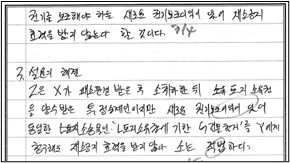 권리를 보호해야 하는 새로운 권리보호이익이 있어 재소금지
효력을 받지 않는다 할 것이다.
3. 설문의 해결
Z은 X가 패소판결 받은 후 소취하한 뒤 소유 토지 소유권
을 양수받은 특정승계인이지만 새로운 권리보호이익이 있어
동일한 소송물인 "L토지소유권에 기한 건물철거"를 Y에게
청구해도 재소금지 효력을 받지 않아 소는 적법하다.